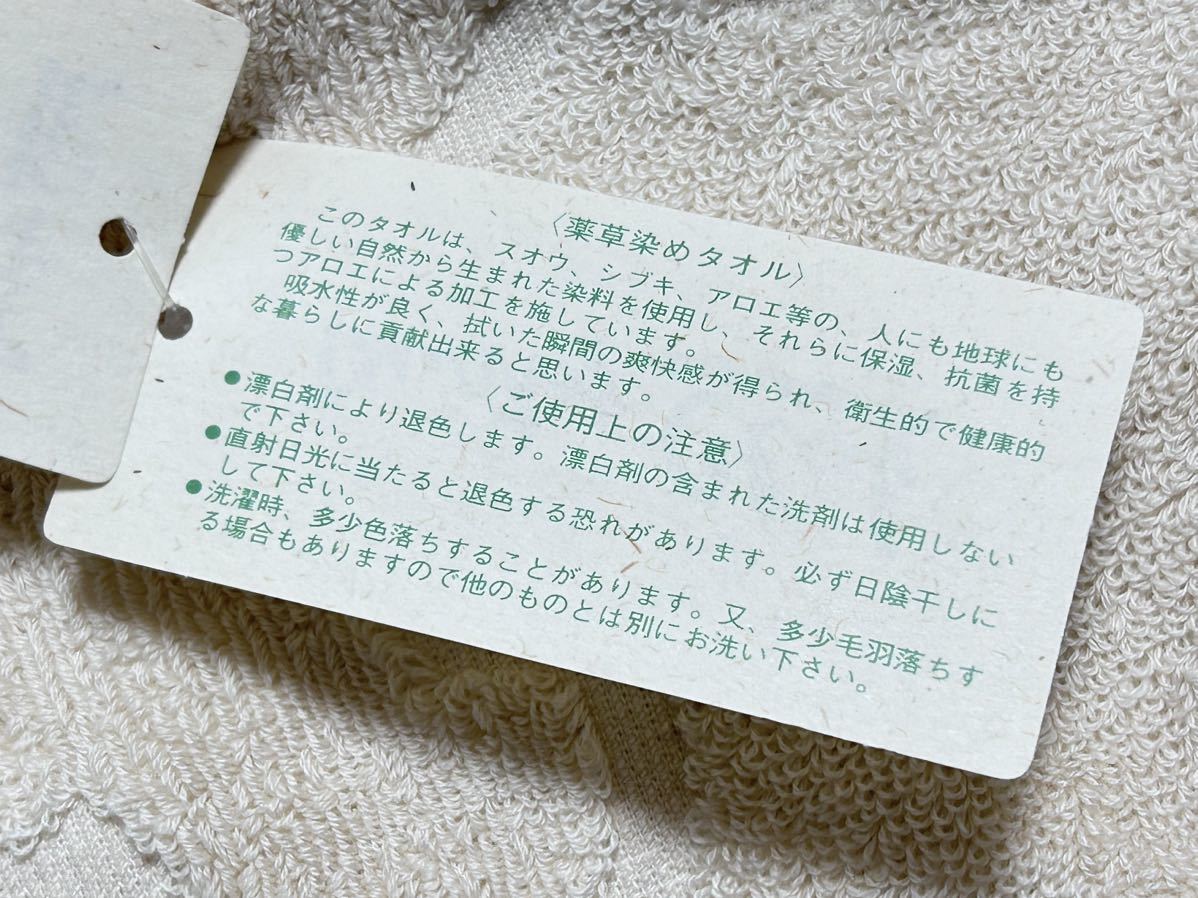 〈薬草染めタオル〉
このタオルは、スオウ、シブキ、アロエ等の、人にも地球にも
優しい自然から生まれた染料を使用し、それらに保湿、抗菌を持
つアロエによる加工を施しています。
吸水性が良く、拭いた瞬間の爽快感が得られ、衛生的で健康的
な暮らしに貢献出来ると思います。
〈ご使用上の注意〉
●漂白剤により退色します。漂白剤の含まれた洗剤は使用しない
で下さい。
●直射日光に当たると退色する恐れがあります。必ず日陰干しに
して下さい。
●洗濯時、多少色落ちすることがあります。又、多少毛羽落ちす
る場合もありますので他のものとは別にお洗い下さい。